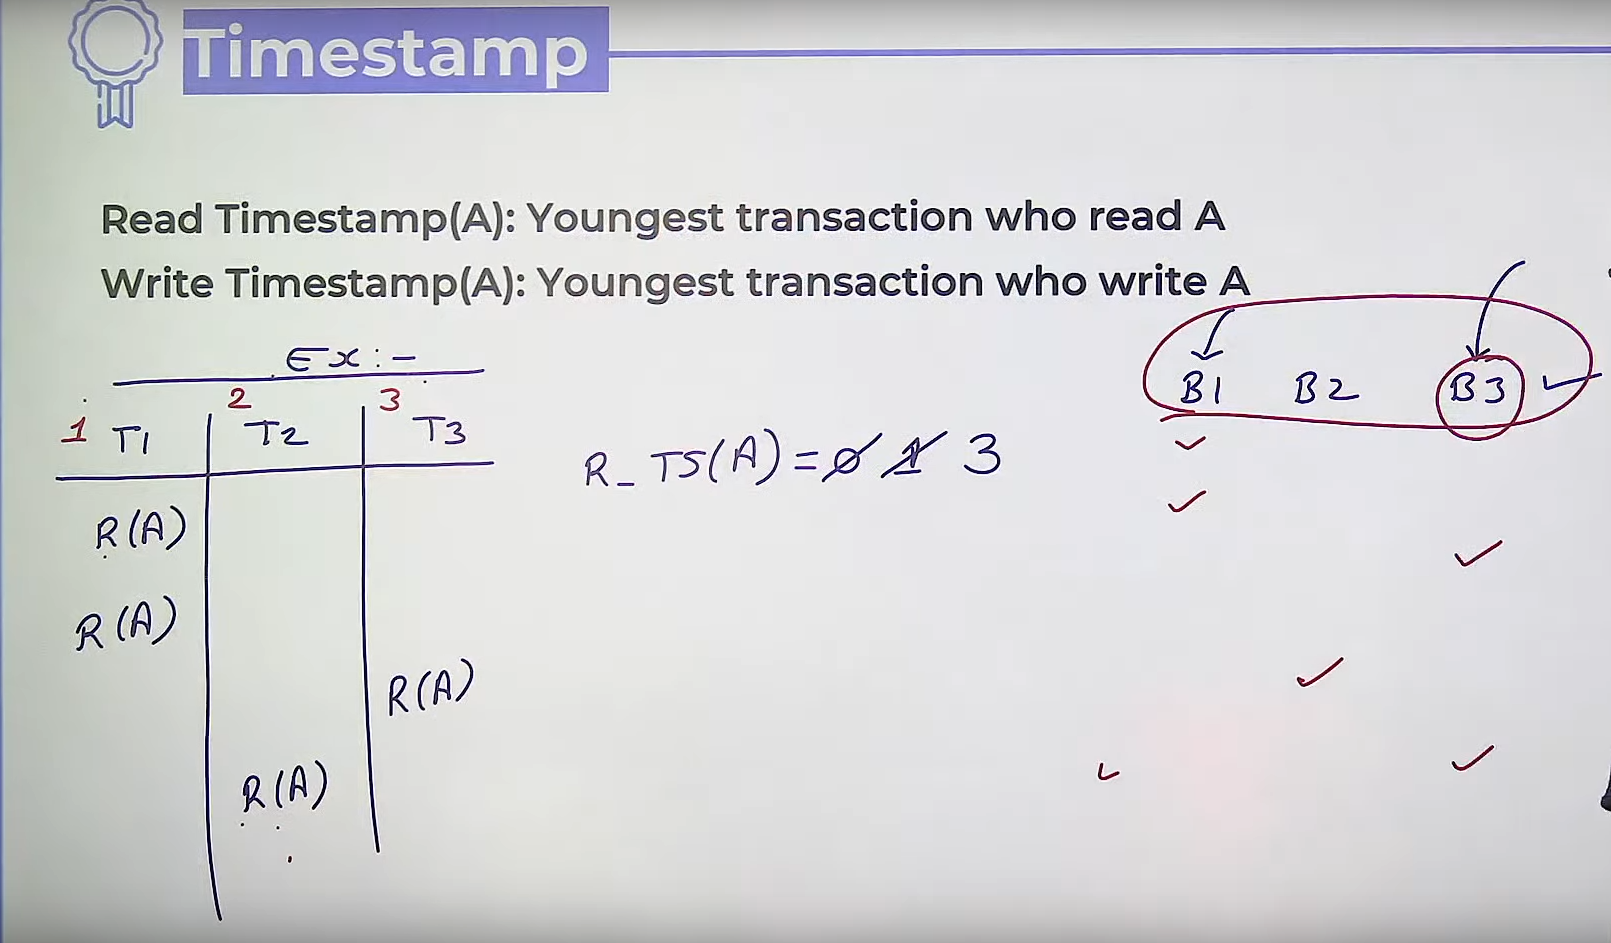 Timestamp
Read Timestamp(A): Youngest transaction who read A
Write Timestamp(A): Youngest transaction who write A
Ex:-
1 T1 2 T2 3 T3
R_TS(A) = 0 1 3
B1 B2 B3
R(A)
R(A)
R(A)
R(A)